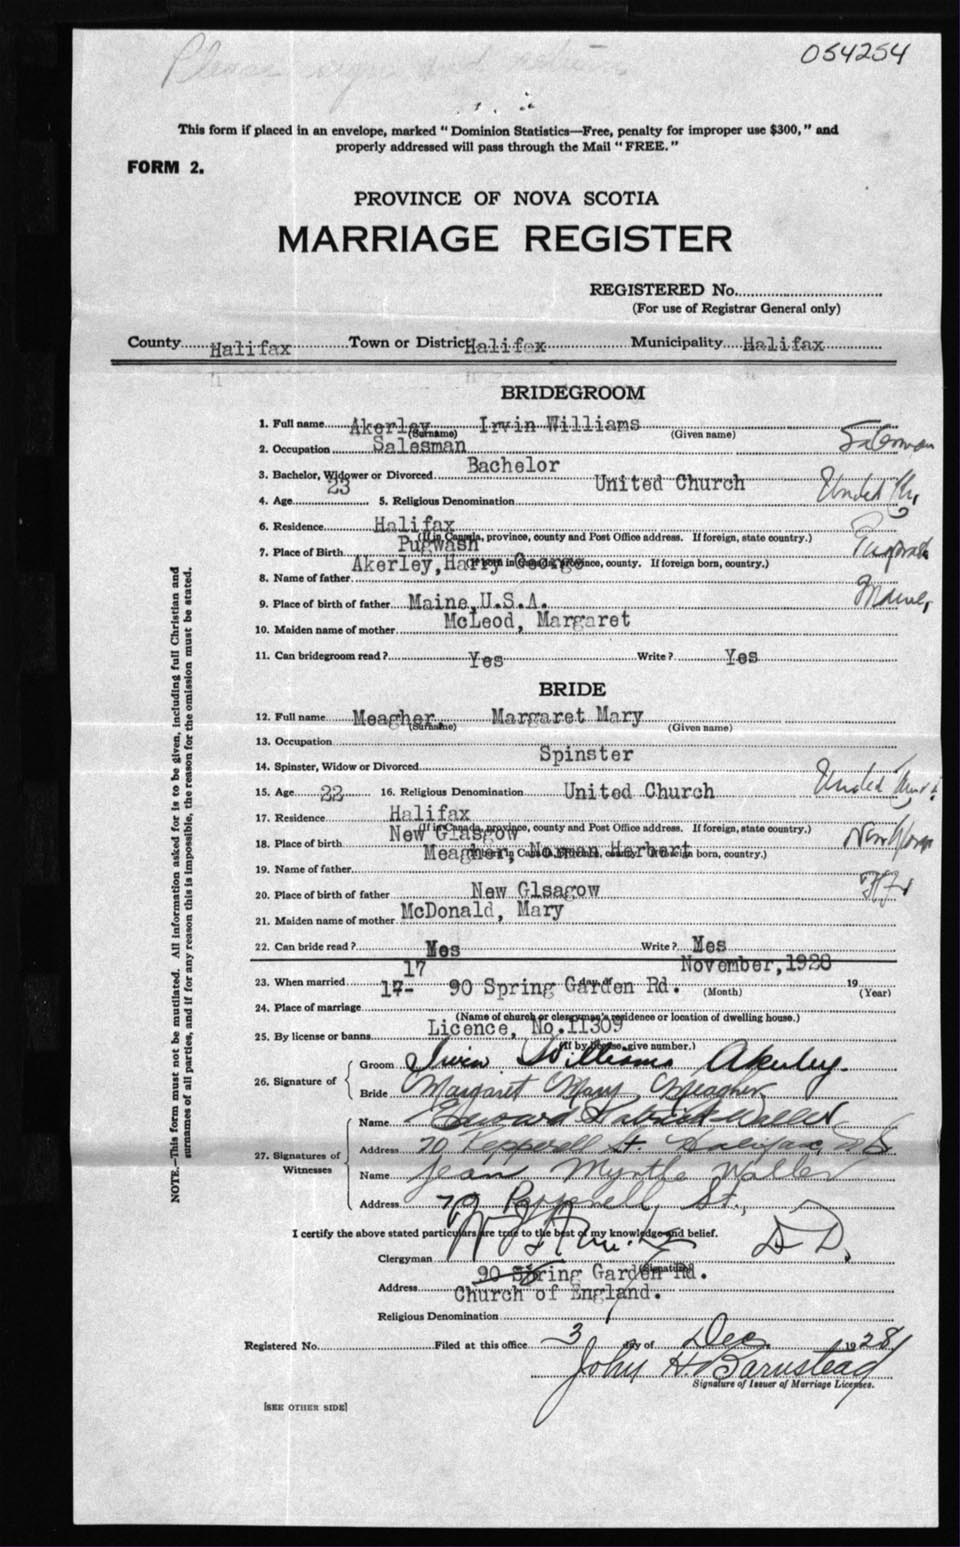 Please sign and return
054254
This form if placed in an envelope, marked "Dominion Statistics—Free, penalty for improper use $300," and
properly addressed will pass through the Mail "FREE."
FORM 2.
PROVINCE OF NOVA SCOTIA
MARRIAGE REGISTER
REGISTERED No.
(For use of Registrar General only)
County Halifax Town or District Halifax Municipality Halifax
BRIDEGROOM
1. Full name Akerley Irvin Williams
(Surname) (Given name)
2. Occupation Salesman Salesman
3. Bachelor, Widower or Divorced Bachelor
4. Age 23 5. Religious Denomination United Church United Ch,
6. Residence Halifax
(If in Canada, province, county and Post Office address. If foreign, state country.)
7. Place of Birth Pugwash Pugwash
(If born in Canada, province, county. If foreign born, country.)
8. Name of father Akerley, Harry George
9. Place of birth of father Maine, U.S.A. Maine,
10. Maiden name of mother McLeod, Margaret
11. Can bridegroom read? Yes Write? Yes
BRIDE
12. Full name Meagher Margaret Mary
(Surname) (Given name)
13. Occupation
14. Spinster, Widow or Divorced Spinster
15. Age 22 16. Religious Denomination United Church United
17. Residence Halifax
(If in Canada, province, county and Post Office address. If foreign, state country.)
18. Place of birth New Glasgow
(If born in Canada, province, county. If foreign born, country.)
19. Name of father Meagher, Norman Herbert
20. Place of birth of father New Glsagow
21. Maiden name of mother McDonald, Mary
22. Can bride read? Mes Write? Mes
23. When married 17 17- November, 1928 19
(Month) (Year)
24. Place of marriage 90 Spring Garden Rd.
(Name of church or clergyman's residence or location of dwelling house.)
25. By license or banns Licence, No. 11309
(If by license, give number.)
26. Signature of Groom Irvin Williams Akerley.
Bride Margaret Mary Meagher
27. Signatures of Witnesses
Name Edward Patrick Waller
Address 70 Pepperell St. Halifax, N S
Name Jean Myrtle Waller
Address 70 Pepperell St.,
I certify the above stated particulars are true to the best of my knowledge and belief.
Clergyman D.D.
(Signature)
Address 90 Spring Garden Rd.
Religious Denomination Church of England.
Registered No. Filed at this office 3 day of Dec 1928
John H. Barnstead
Signature of Issuer of Marriage Licenses.
[SEE OTHER SIDE]
NOTE.—This form must not be mutilated. All information asked for is to be given, including full Christian and
surnames of all parties, and if for any reason this is impossible, the reason for the omission must be stated.